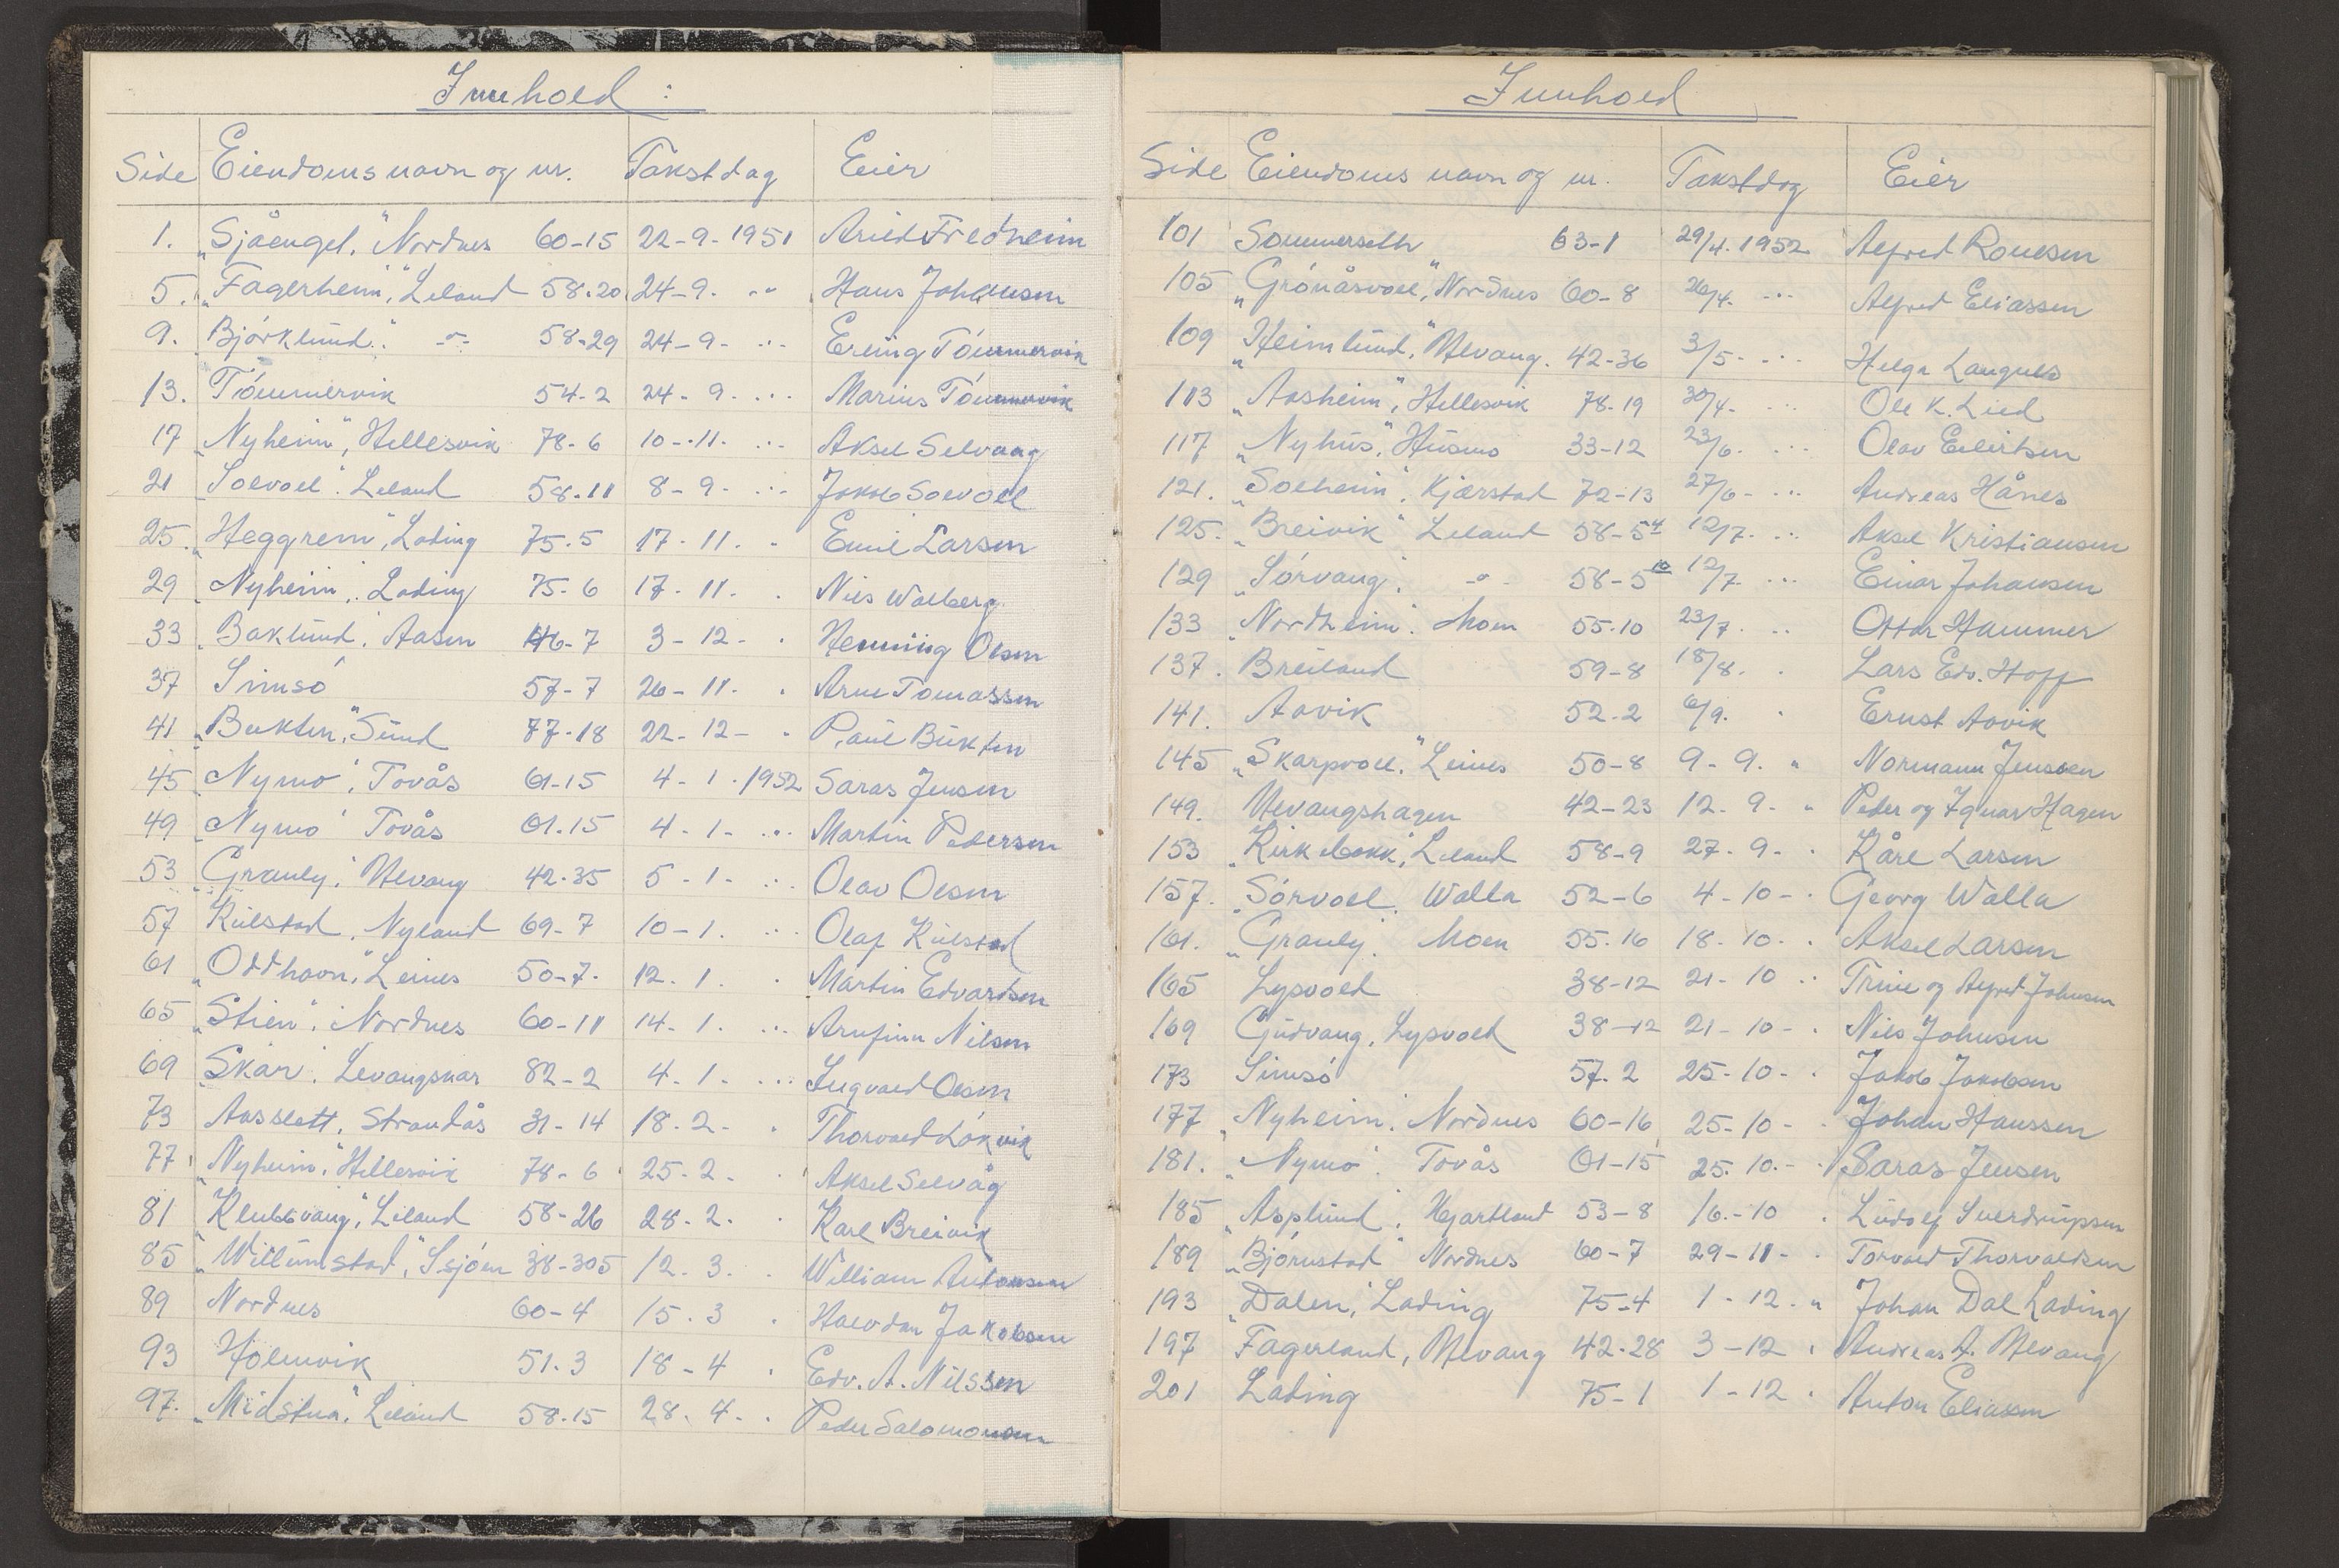 Innhold :
Side Eiendoms navn og nr. Takstdag Eier
1. „Sjåenget," Nordnes 60-15 22-9-1951 Arild Fredheim
5. „Fagerheim", Leland 58-20 24-9. -"- Hans Johansen
9. „Bjørklund". -"- 58-29 24-9- -"- Erling Tømmervik
13. Tømmervik 54-2 24-9. -"- Marius Tømmervik
17 „Nyheim", Hellesvik 78-6 10-11. -"- Aksel Selvaag
21 „Solvoll". Leland 58-11 8-9- -"- Jakob Solvoll
25. „Heggrem", Lading 75-5 17-11. " Emil Larsen
29 „Nyheim", Lading 75-6 17-11- " Nils Walberg
33 „Baklund", Aasen 46-7 3-12- " Henning Olsen
37 Simsø 57-7 26-11- " Arne Tomassen
41 „Bukten", Sund 77-18 22-12- " Paul Bukten
45 „Nymo", Tovås 61-15 4-1-1952 Saras Jensen
49 „Nymo" Tovås 61-15 4-1- -"- Martin Pedersen
53 „Granly", Alvang 42-35 5-1- -"- Olav Olsen
57 Kulstad, Nyland 69-7 10-1. -"- Olaf Kulstad
61 „Oddhavn", Leines 50-7. 12.1. " Martin Edvardsen
65 „Stien", Nordnes 60-11 14-1. -"- Arnfinn Nilsen
69 „Skar", Levangsnar 82-2 4-1. -"- Ingvald Olsen
73 Aasslett, Strandås 31-14 18-2- " Thorvald Løkvik
77 „Nyheim", Hellesvik 78-6 25-2. " Aksel Selvåg
81 „Klubbvang", Leland 58-26 28-2. " Karl Breivik
85 „Willumstad", S.sjøen 38-305 12.3. " William Antonsen
89 Nordnes 60-4 15.3 " Halvdan Jakobsen
93 Holmvik 51.3 18-4 " Edv. A. Nilssen
97. „Midstua", Leland 58-15 28.4- " Peder Salomonsen
Innhold
Side Eiendoms navn og nr. Takstdag Eier
101 Sommerseth 63-1 29/4. 1952 Alfred
105 „Grønåsvoll", Nordnes 60-8 26/4. -"- Alfred Eliassen
109 „Heimlund", Alvang. 42-36 3/5- -"- Helga Langnes
113 „Aasheim", Hellesvik 78-19 30/4- -"- Ole K. Lied
117 „Nyhus", Husmo 33-12 23/6. -"- Olav Eilertsen
121. „Solheim", Kjærstad 72-13 27/6- -"- Andreas Hånes
125. „Breivik" Leland 58-5⁴ 12/7. -"- Aksel Kristiansen
129 „Sørvang", -"- 58-5¹⁰ 12/7. -"- Einar Johansen
133 „Nordheim". Moen 55-10 23/7. " Ottar Hammer
137. Breiland 59-8 18/8. " Lars Edv. Hoff
141. Aavik 52-2 6/9. " Ernst Aavik
145 „Skarpvoll", Leines 50-8 9-9. " Normann Jenssen
149. Alvangshagen 42-23 12.9- " Peder og Ignar Hagen
153 „Kirkbakk", Leland 58-9 27-9- " Kåre Larsen
157. „Sørvoll", Walla 52-6 4-10- " Georg Walla
161. „Granly", Moen 55-16 18-10- " Aksel Larsen
165 Lysvold 38-12 21-10 " Trine og Alfred Johnsen
169 Gudvang, Lysvold 38-12 21-10- " Nils Johnsen
173 Simsø 57-2 25-10- " Jakob Jakobsen
177 „Nyheim", Nordnes 60-16 25-10- " Johan Hanssen
181. „Nymo". Tovås 61-15 25.10.- " Saras Jensen
185 „Asplund", Hjartland 53-8 16.-10 " Ludolf Sverdrupsen
189 „Bjørnstad" Nordnes 60-7 29-11- " Torvald Thorvaldsen
193 „Dalen", Lading 75-4 1-12. " Johan Dal Lading
197 Fagerland, Alvang 42-28 3-12 " Andreas A. Alvang
201 Lading 75-1 1-12 " Anton Eliassen